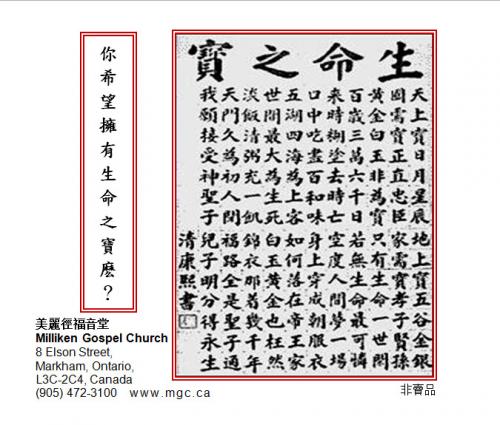 你希望擁有生命之寶麼？
生命之寶
天上寶日月星辰 地上寶五谷金銀
國需寶正直忠臣 家需寶孝子賢孫
黃金白玉非為寶 只有生命一世閒
百歲三萬六千日 若無生命最可憐
來時糊塗去時亡 空度人間夢一場
口中吃盡百和味 身上穿成朝服衣
五湖四海為上客 如何落在帝王家
世間最大為生死 白玉黃金也枉然
淡飯清粥充一飢 錦衣那着幾千年
天門久為初人閉 福路全是聖子通
我願接受神聖子 兒子明分得永生
清康熙書
美麗徑福音堂
Milliken Gospel Church
8 Elson Street,
Markham, Ontario,
L3C-2C4, Canada
(905) 472-3100 www.mgc.ca
非賣品